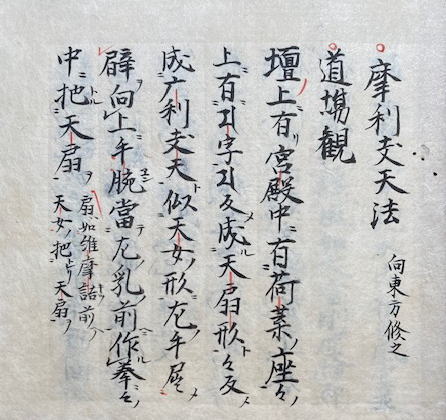 摩利支天法 向東方修之
道場觀
壇上有宮殿中有荷葉座々
上有字反成天扇形々反
成广利支天似天女形左手屈
臂向上手腕當左乳前作拳々
中把天扇 扇如維摩詰前
天女把天扇